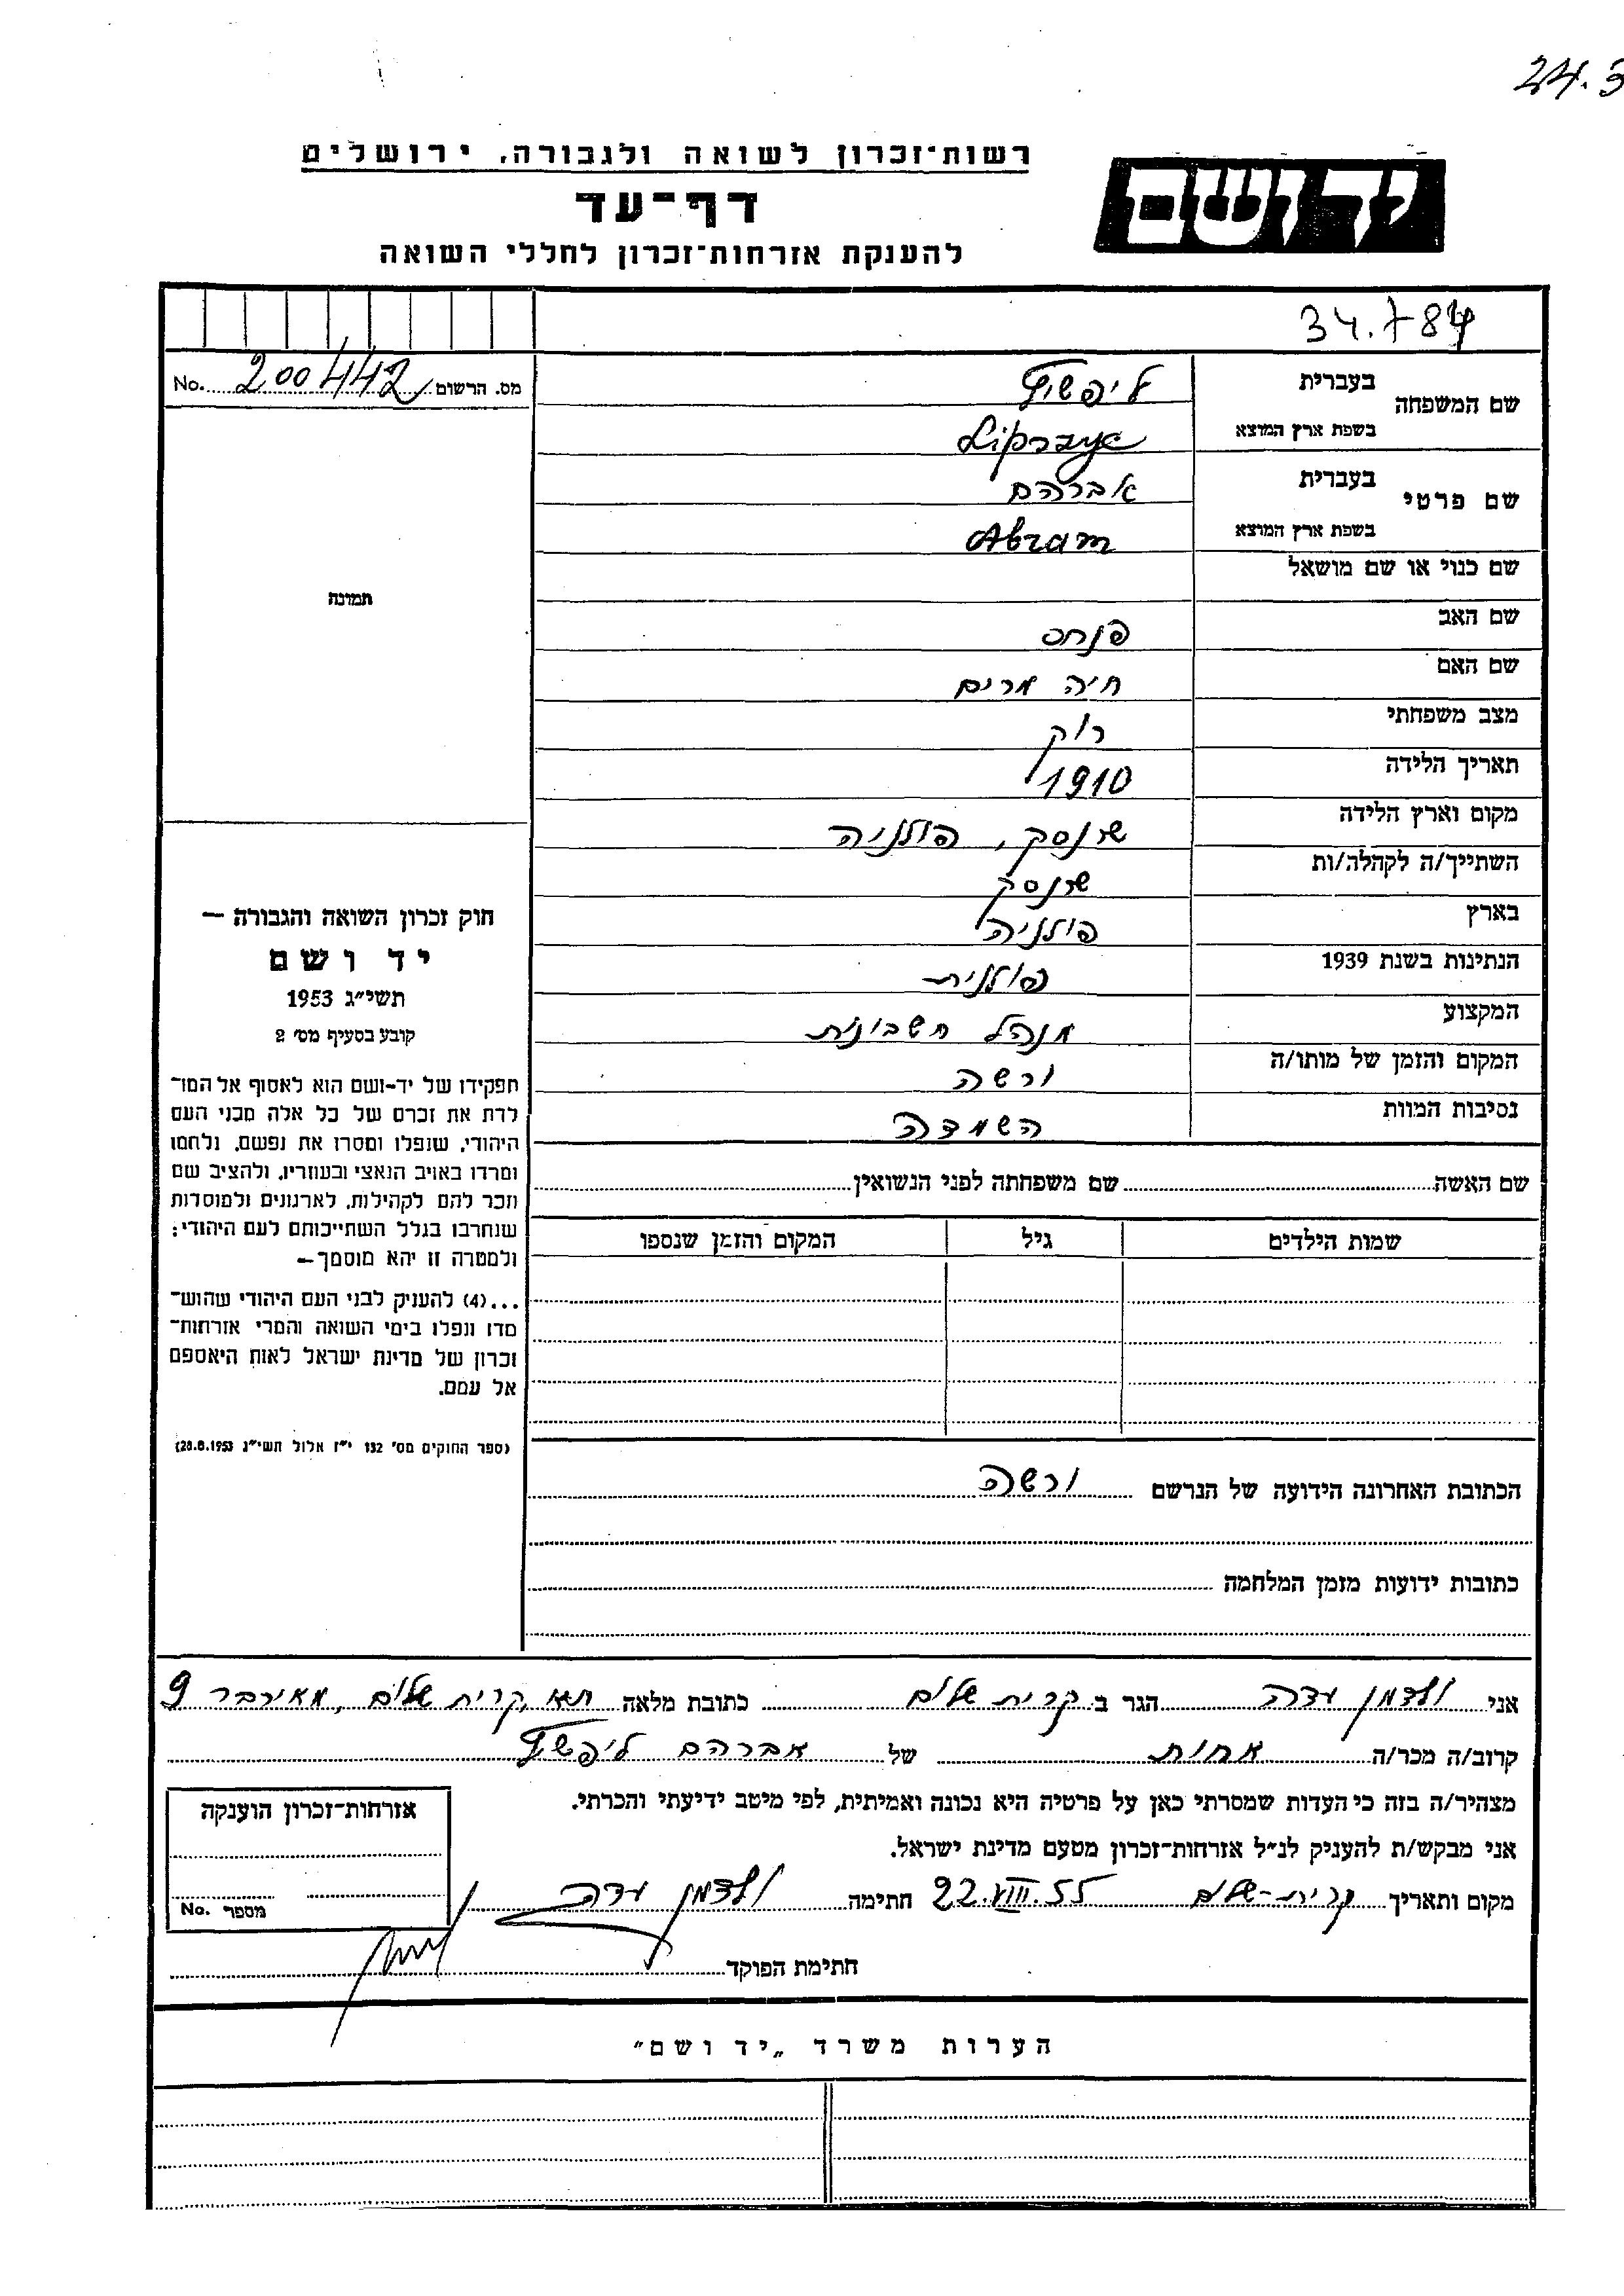 24.3
רשות־זכרון לשואה ולגבורה, ירושלים
יד ושם
דף־עד
להענקת אזרחות־זכרון לחללי השואה
34.784
מס. הרשום 200442 No.
שם המשפחה
בעברית
בשפת ארץ המוצא
שם פרטי
בעברית אברהם
בשפת ארץ המוצא Abram
שם כנוי או שם מושאל
שם האב פנחס
שם האם חיה מרים
מצב משפחתי רוק
תאריך הלידה 1910
מקום וארץ הלידה שרנסק, פולניה
השתייך/ה לקהלה/ות שרנסק
בארץ פולניה
הנתינות בשנת 1939 פולנית
המקצוע מנהל חשבונות
המקום והזמן של מותו/ה ורשה
נסיבות המוות השמדה
שם האשה שם משפחתה לפני הנשואין
שמות הילדים גיל המקום והזמן שנספו
הכתובת האחרונה הידועה של הנרשם ורשה
כתובות ידועות מזמן המלחמה
תמונה
חוק זכרון השואה והגבורה —
יד ושם
תשי״ג 1953
קובע בסעיף מס׳ 2
תפקידו של יד-ושם הוא לאסוף אל המו־
לדת את זכרם של כל אלה מבני העם
היהודי, שנפלו ומסרו את נפשם, נלחמו
ומרדו באויב הנאצי ובעוזריו, ולהציב שם
וזכר להם לקהילות, לארגונים ולמוסדות
שנחרבו בגלל השתייכותם לעם היהודי;
ולמטרה זו יהא מוסמך—
...(4) להעניק לבני העם היהודי שהוש־
מדו ונפלו בימי השואה והמרי אזרחות־
זכרון של מדינת ישראל לאות היאספם
אל עמם.
(ספר החוקים מס׳ 132 י״ז אלול תשי״ג 28.8.1953)
אני ולדמן עדה הגר ב קרית שלום כתובת מלאה קרית שלום, 9
קרוב/ה מכר/ה אחות של אברהם
מצהיר/ה בזה כי העדות שמסרתי כאן על פרטיה היא נכונה ואמיתית, לפי מיטב ידיעתי והכרתי.
אני מבקש/ת להעניק לנ״ל אזרחות־זכרון מטעם מדינת ישראל.
מקום ותאריך קרית-שלום 22.VIII.55 חתימה ולדמן עדה
חתימת הפוקד
אזרחות־זכרון הוענקה
מספר No.
הערות משרד „יד ושם״